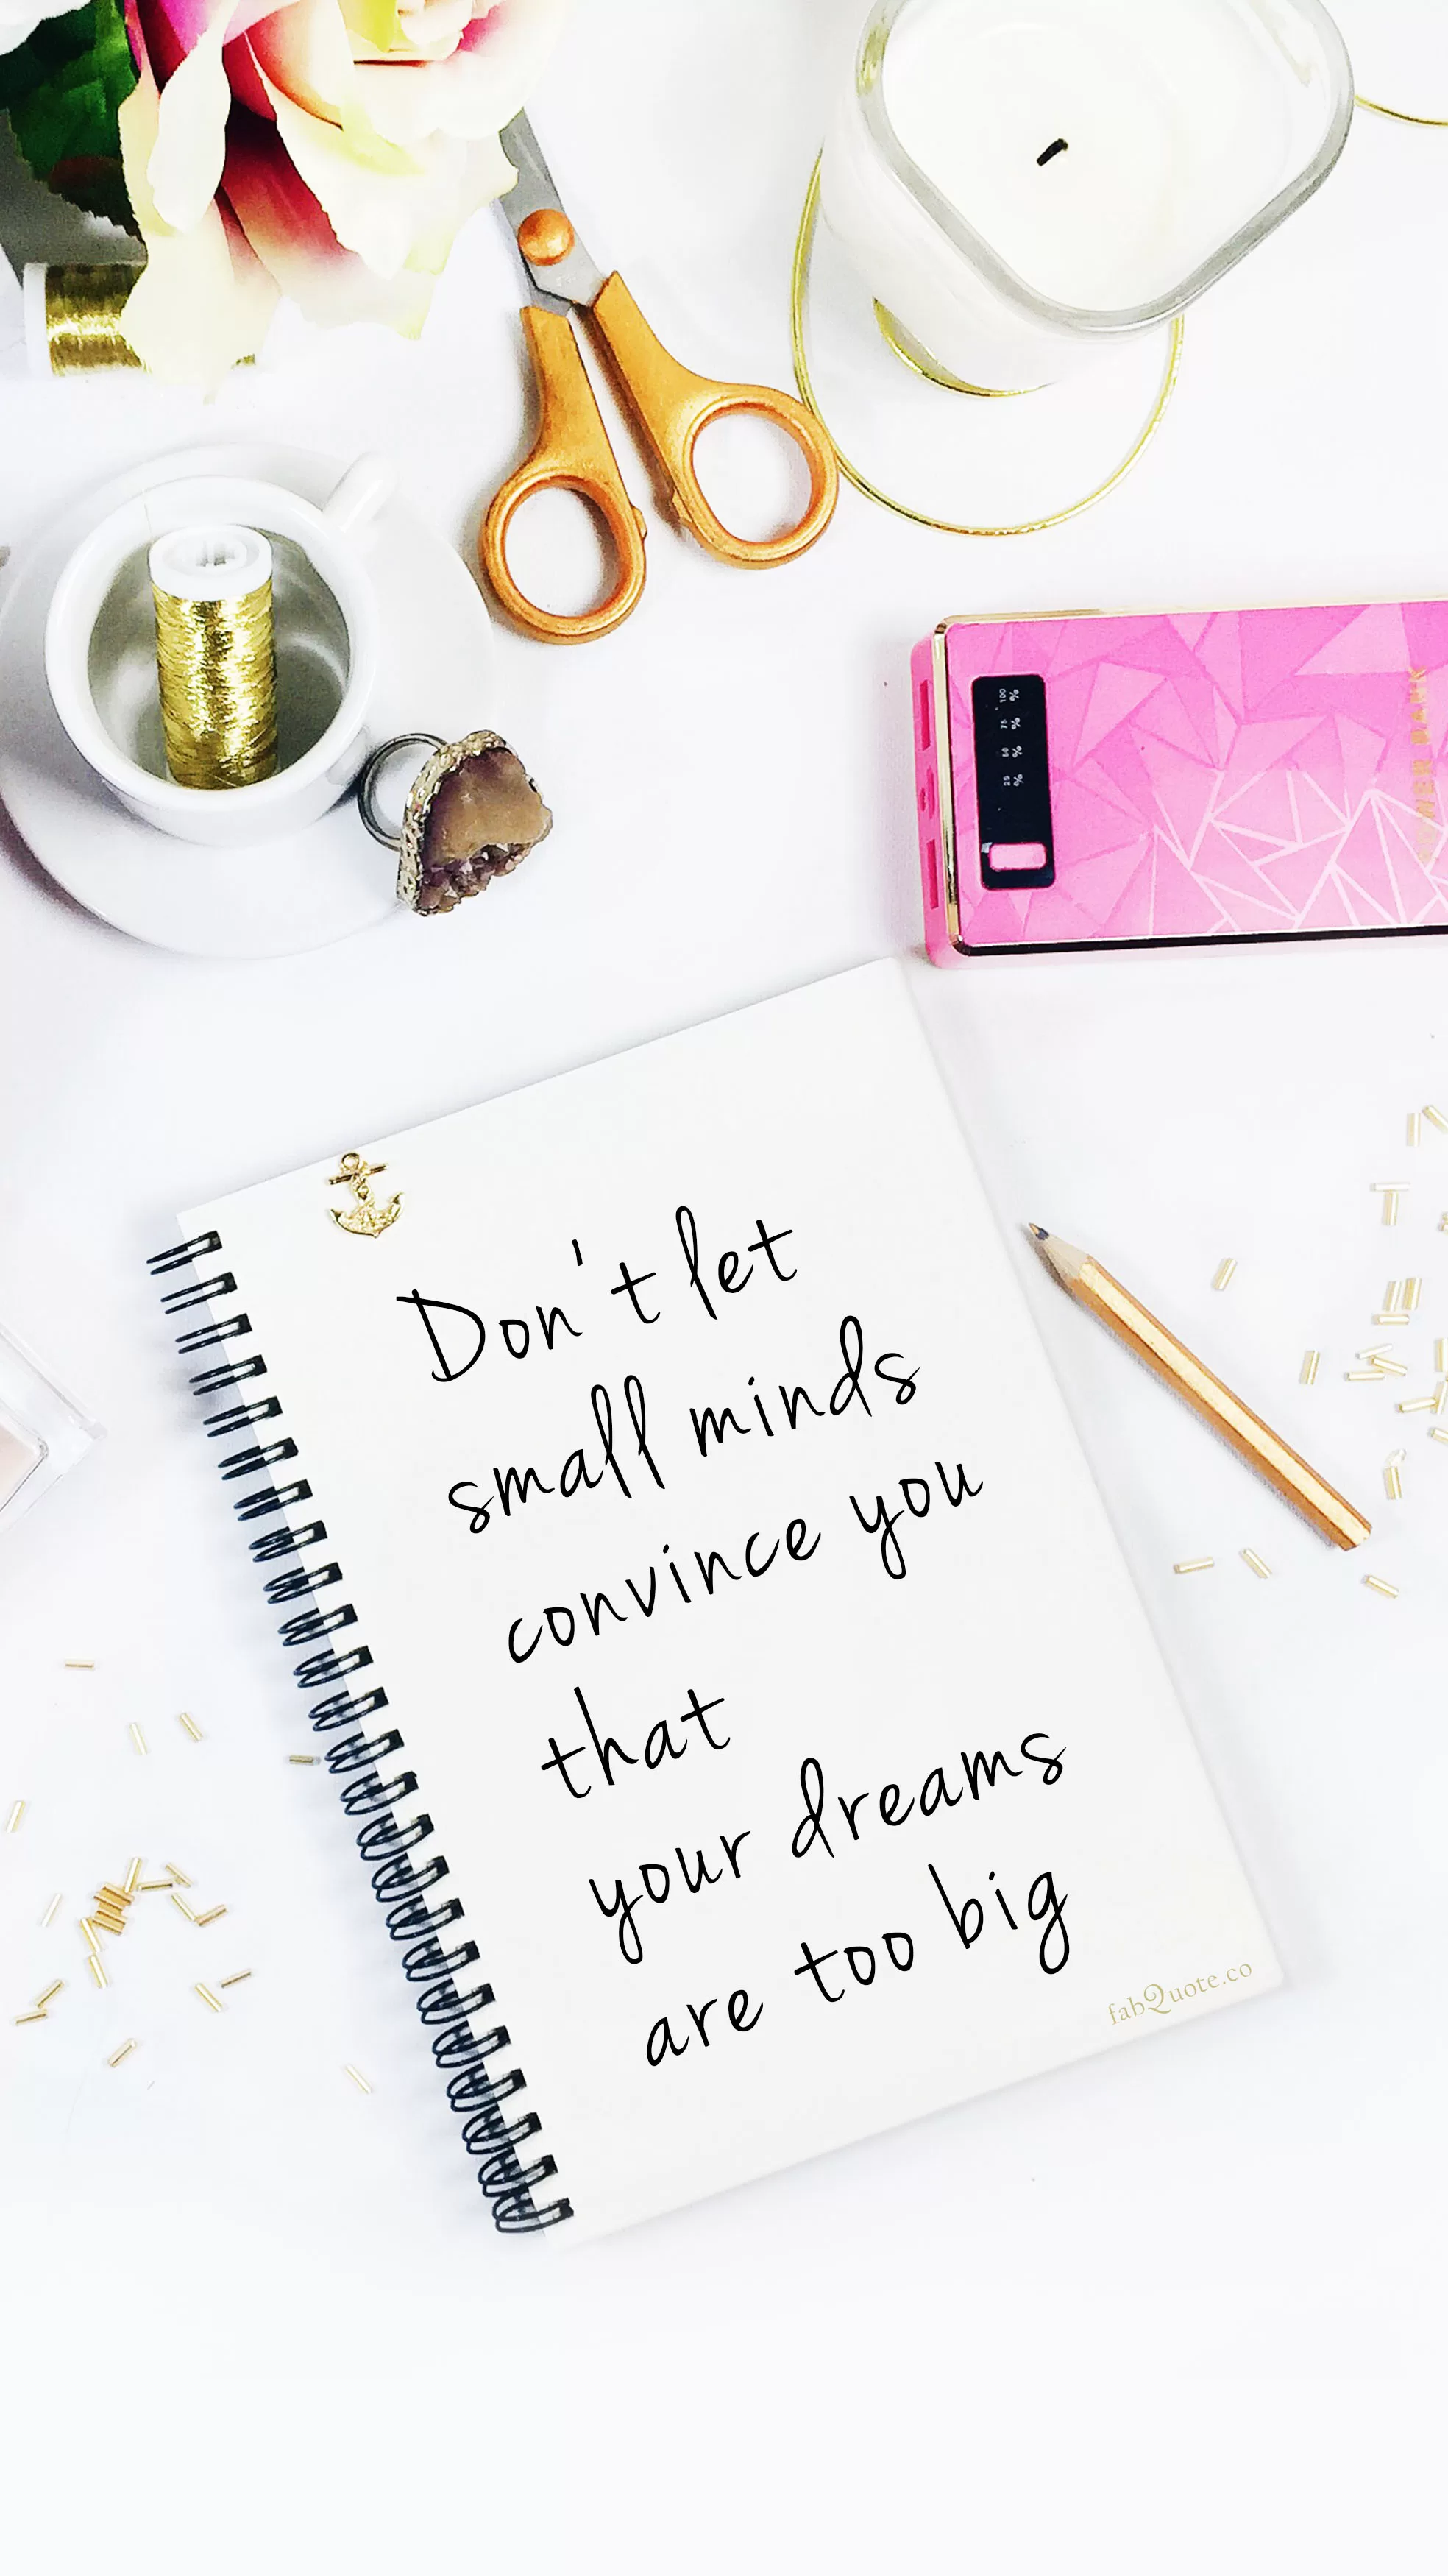 100 %
75 %
50 %
25 %
POWER BANK
Don't let
small minds
convince you
that
your dreams
are too big
fabQuote.co